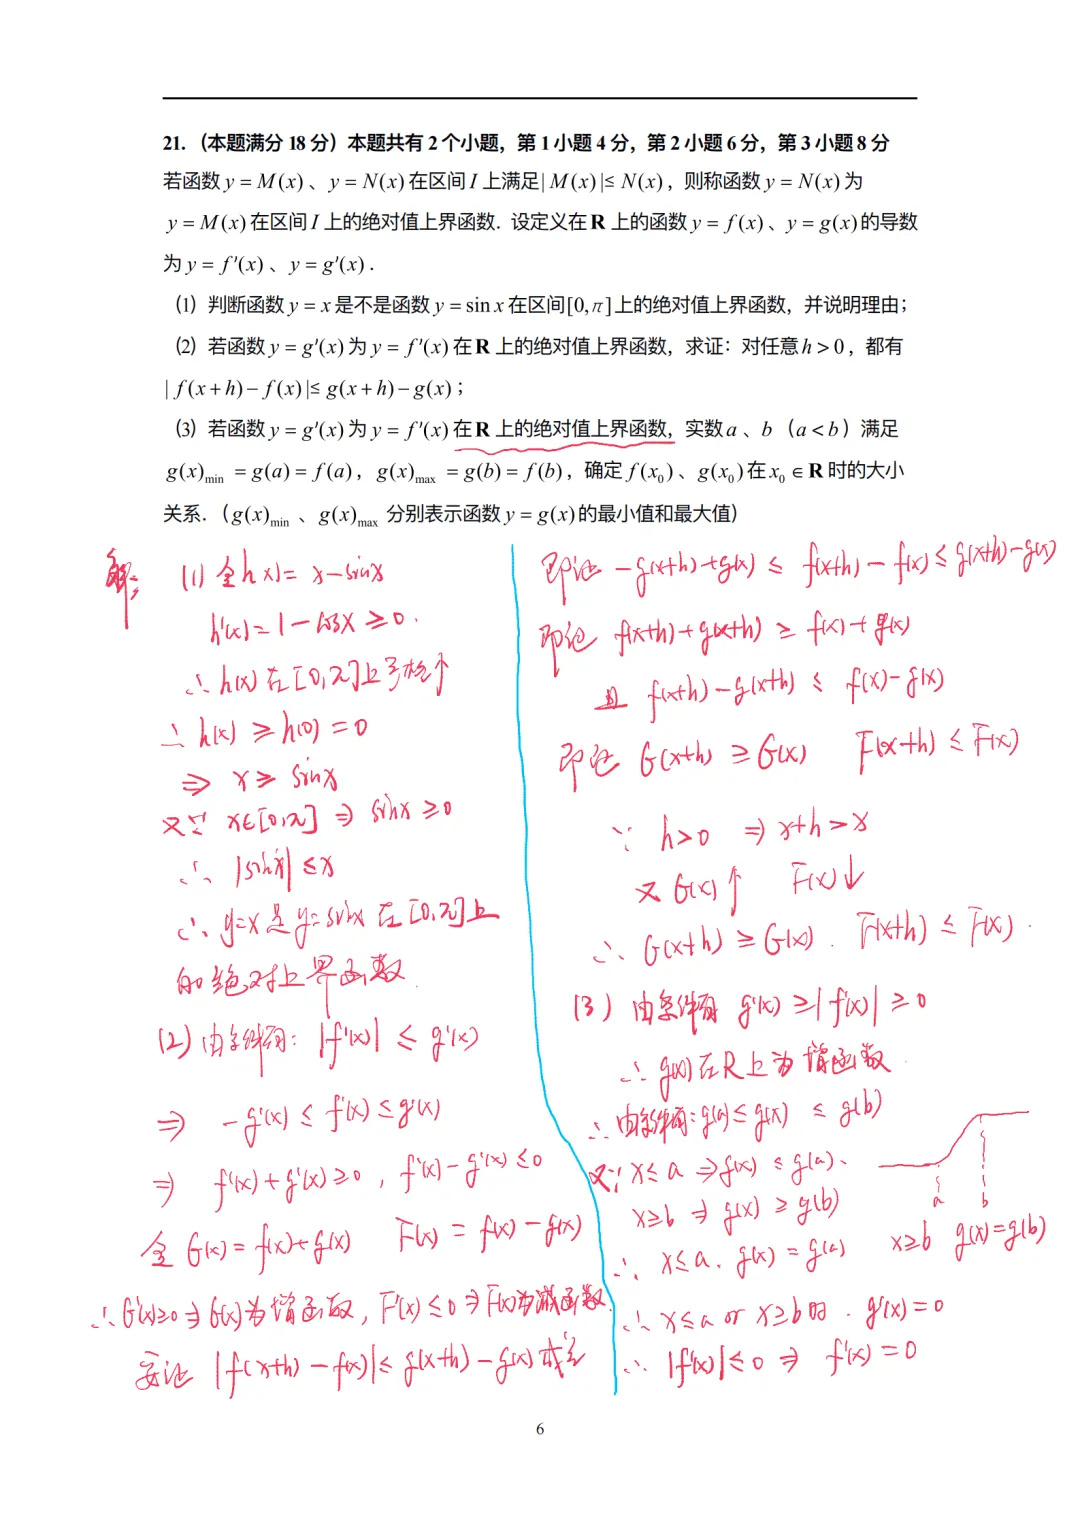 21.（本题满分 18 分）本题共有 2 个小题，第 1 小题 4 分，第 2 小题 6 分，第 3 小题 8 分
若函数 y = M(x)、y = N(x) 在区间 I 上满足 | M(x) |≤ N(x)，则称函数 y = N(x) 为
y = M(x) 在区间 I 上的绝对值上界函数．设定义在 R 上的函数 y = f(x)、y = g(x) 的导数
为 y = f′(x)、y = g′(x)．
（1）判断函数 y = x 是不是函数 y = sin x 在区间[0,π]上的绝对值上界函数，并说明理由；
（2）若函数 y = g′(x) 为 y = f′(x) 在 R 上的绝对值上界函数，求证：对任意 h > 0，都有
| f(x+h) − f(x) |≤ g(x+h) − g(x)；
（3）若函数 y = g′(x) 为 y = f′(x) 在 R 上的绝对值上界函数，实数 a、b（a < b）满足
g(x)min = g(a) = f(a)，g(x)max = g(b) = f(b)，确定 f(x₀)、g(x₀) 在 x₀ ∈ R 时的大小
关系．（g(x)min、g(x)max 分别表示函数 y = g(x) 的最小值和最大值）
解：(1) 令h(x)= x−sinx
h'(x)=1−cosx ≥0.
∴h(x)在[0,π]上
∴ h(x) ≥h(0) =0
⇒ x≥ sinx
又∵ x∈[0,π] ⇒ sinx ≥0
∴ |sinx| ≤x
∴ y=x是y=sinx在[0,π]上
的绝对上界函数.
(2) 由条件有: |f'(x)| ≤ g'(x)
⇒ −g'(x) ≤ f'(x) ≤g'(x)
⇒ f'(x)+g'(x)≥0, f'(x)−g'(x)≤0
令 G(x)=f(x)+g(x) F(x) = f(x)−g(x)
∴G'(x)≥0 ⇒G(x)为增函数, F'(x)≤0 ⇒F(x)为减函数.
要证 |f(x+h)−f(x)|≤ g(x+h)−g(x) 成立
即证 −g(x+h)+g(x) ≤ f(x+h)−f(x)≤g(x+h)−g(x)
即证 f(x+h)+g(x+h) ≥ f(x)+g(x)
且 f(x+h)−g(x+h) ≤ f(x)−g(x)
即证 G(x+h) ≥G(x) F(x+h) ≤F(x)
∵ h>0 ⇒ x+h>x
又 G(x)↑ F(x)↓
∴ G(x+h) ≥G(x). F(x+h) ≤ F(x).
(3) 由条件有 g'(x) ≥|f'(x)| ≥0
∴ g(x)在R上为增函数.
∴由条件有:g(a)≤g(x) ≤g(b)
又∵x≤a ⇒g(x) ≤g(a).
x≥b ⇒ g(x) ≥g(b)
a b
∴ x≤a. g(x) = g(a) x≥b g(x)=g(b)
∴ x≤a or x≥b时. g'(x)=0
∴ |f'(x)|≤0 ⇒ f'(x)=0
6